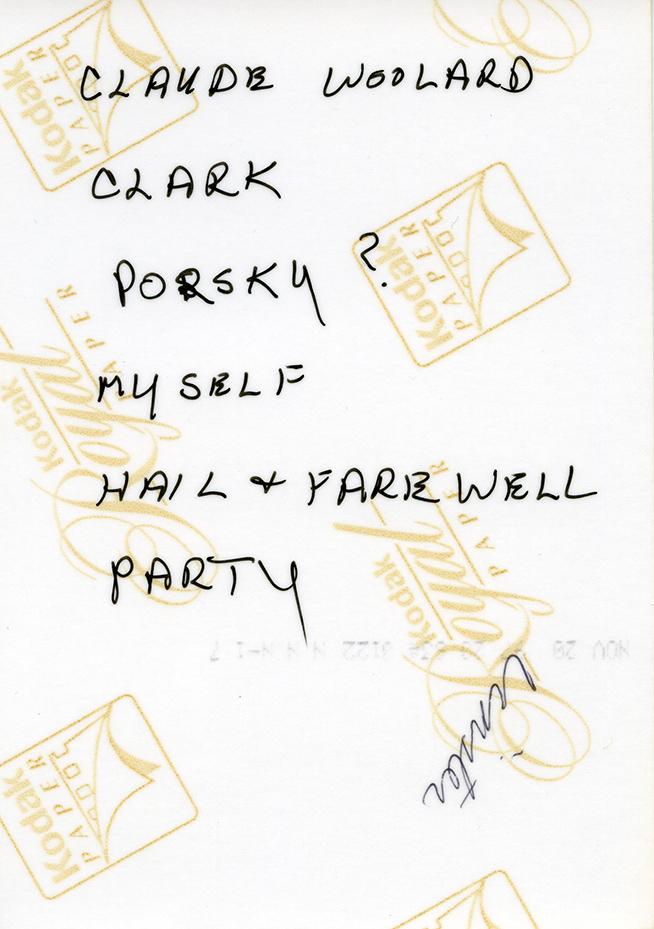 CLAUDE WOOLARD
CLARK
PORSKY ?
MYSELF
HAIL + FAREWELL
PARTY
NOV 20
Kodak
PAPER
Kodak
PAPER
Kodak
Royal
PAPER
Kodak
Royal
PAPER
Kodak
PAPER